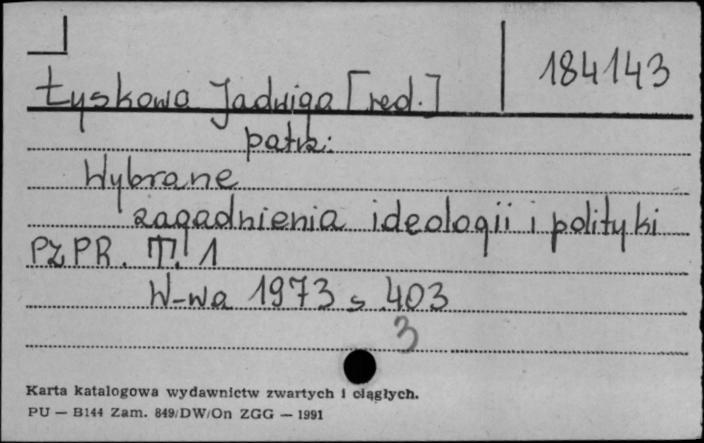 184143
Łyskowa Jadwiga [red.]
patrz:
Wybrane
zagadnienia ideologii i polityki
PZPR. T. 1
W-wa 1973 s. 403
3
Karta katalogowa wydawnictw zwartych i ciągłych.
PU — B144 Zam. 849/DW/On ZGG — 1991